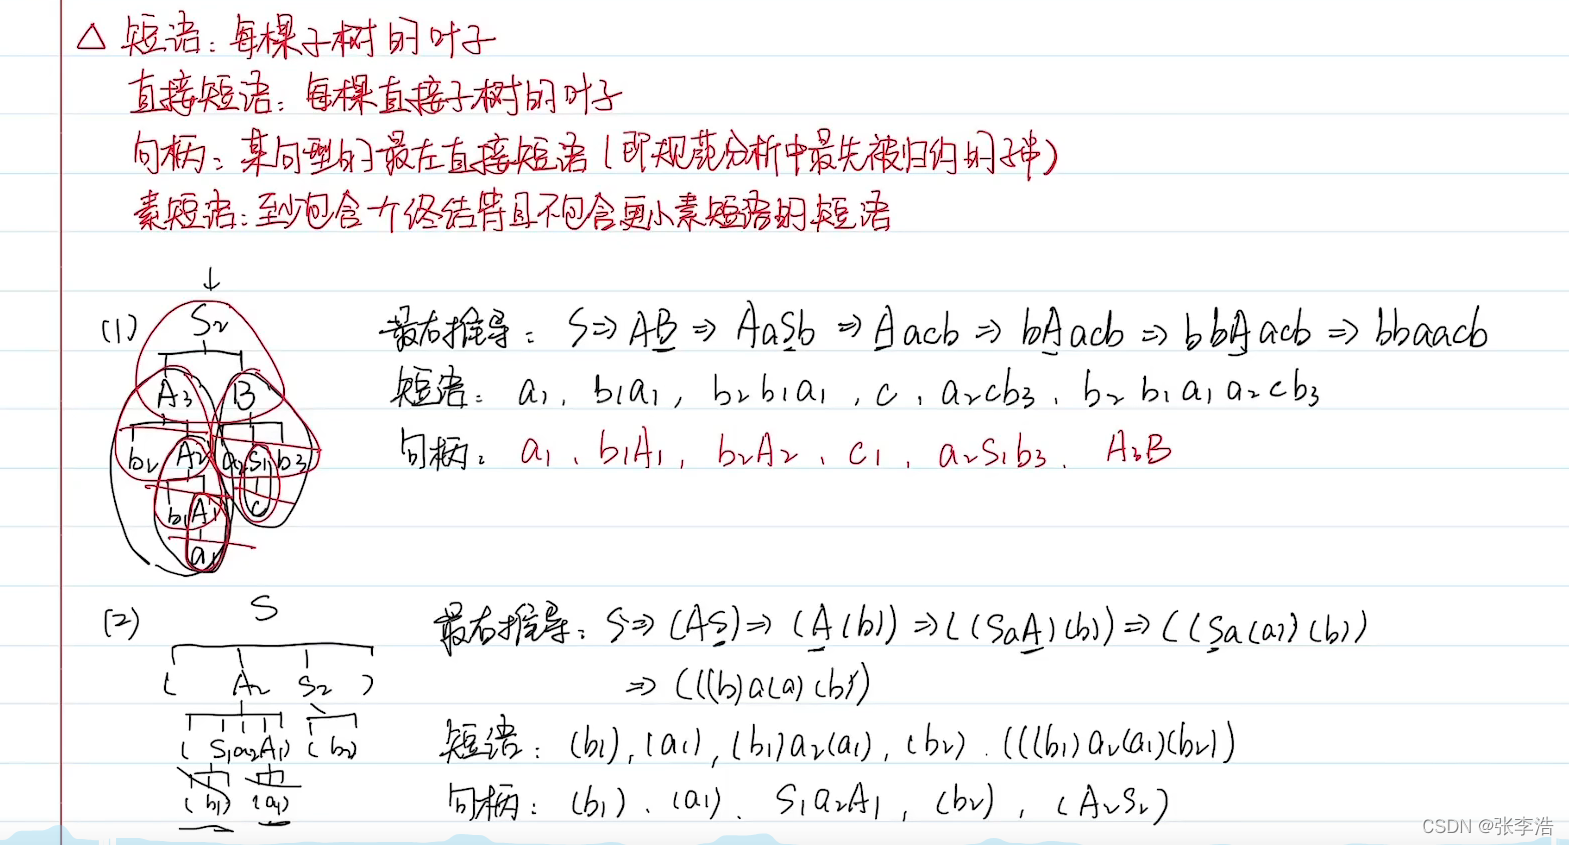 △ 短语：每棵子树的叶子
直接短语：每棵直接子树的叶子
句柄：某句型的最左直接短语（即规范分析中最先被归约的子串）
素短语：至少包含一个终结符且不包含更小素短语的短语
↓
(1) S₂
A₃ B
b₂ A₂ a₂ S₁ b₃
b₁ A₁ c
a₁
最右推导：S⇒AB⇒AaSb⇒Aacb⇒bAacb⇒bbAacb⇒bbaacb
短语：a₁、b₁a₁，b₂b₁a₁，c、a₂cb₃、b₂b₁a₁a₂cb₃
句柄：a₁、b₁A₁，b₂A₂、c₁，a₂S₁b₃、A₃B
(2) S
( A₂ S₂ )
( S₁a₂A₁) ( b₂)
( b₁) (a₁)
最右推导：S⇒(AS)⇒(A(b))⇒((SaA)(b))⇒((Sa(a))(b))
⇒(((b)a(a)(b))
短语：(b₁),(a₁),(b₁)a₂(a₁),(b₂).(((b₁)a₂(a₁)(b₂))
句柄：(b₁)、(a₁)、S₁a₂A₁，(b₂)，(A₂S₂)
CSDN @张李浩